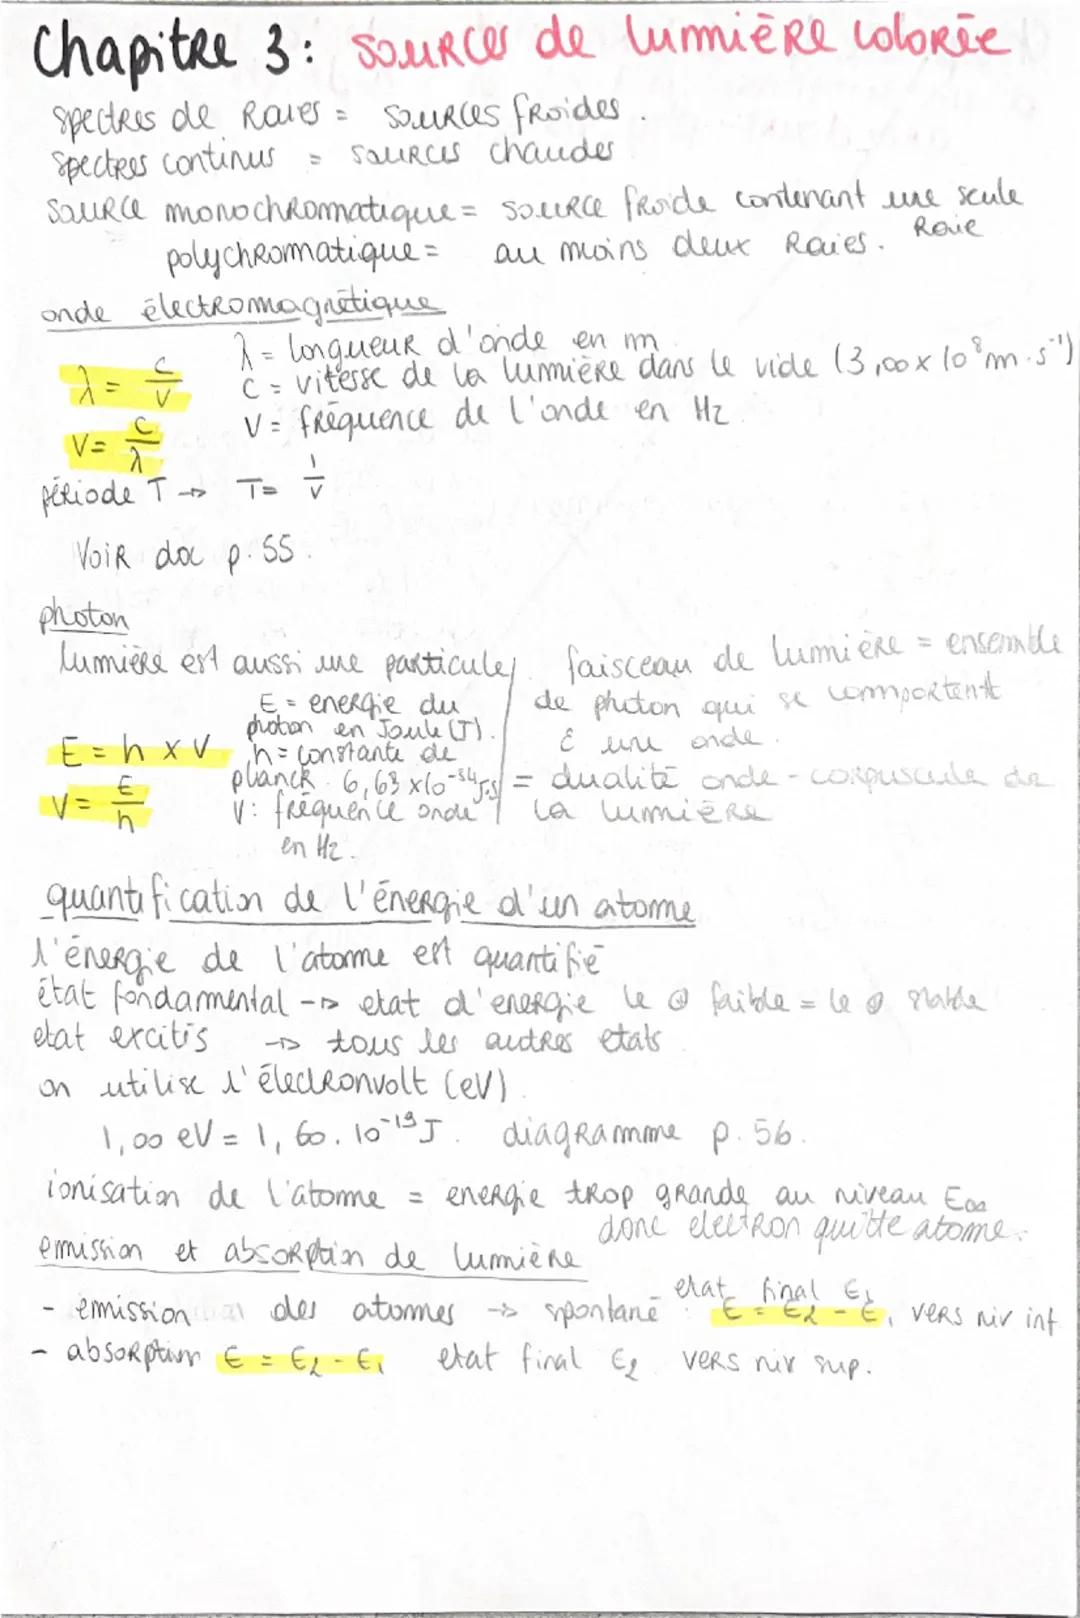 Chapitre 3: sources de lumière colorée
spectres de Raies = sources froides.
spectres continus = sources chaudes
source monochromatique = source froide contenant une seule Raie
polychromatique = au moins deux Raies.
onde électromagnétique
λ = c/ν
λ = longueur d'onde en m
c = vitesse de la lumière dans le vide (3,00 x 10⁸ m.s⁻¹)
ν = c/λ
ν = fréquence de l'onde en Hz
période T → T = 1/ν
Voir doc p.55.
photon
lumière est aussi une particule
E = h x ν
ν = E/h
E = energie du
photon en Joule (J).
h = constante de
planck. 6,63 x10⁻³⁴ J.s
ν: fréquence onde
en Hz.
faisceau de lumière = ensemble
de photon qui se comportent
& une onde.
= dualité onde-corpuscule de
la lumière
quantification de l'énergie d'un atome
l'énergie de l'atome est quantifié
état fondamental → etat d'energie le ⊕ faible = le ⊕ stable
etat excités → tous les autres etats
on utilise l'électronvolt (eV).
1,00 eV = 1,60.10⁻¹⁹ J. diagramme p.56.
ionisation de l'atome = energie trop grande au niveau E∞
donc electron quitte atome.
emission et absorption de lumière
- émission des atomes → spontané : etat final E₁ E = E₂ - E₁ vers niv inf
- absorption E = E₂ - E₁ etat final E₂ vers niv sup.